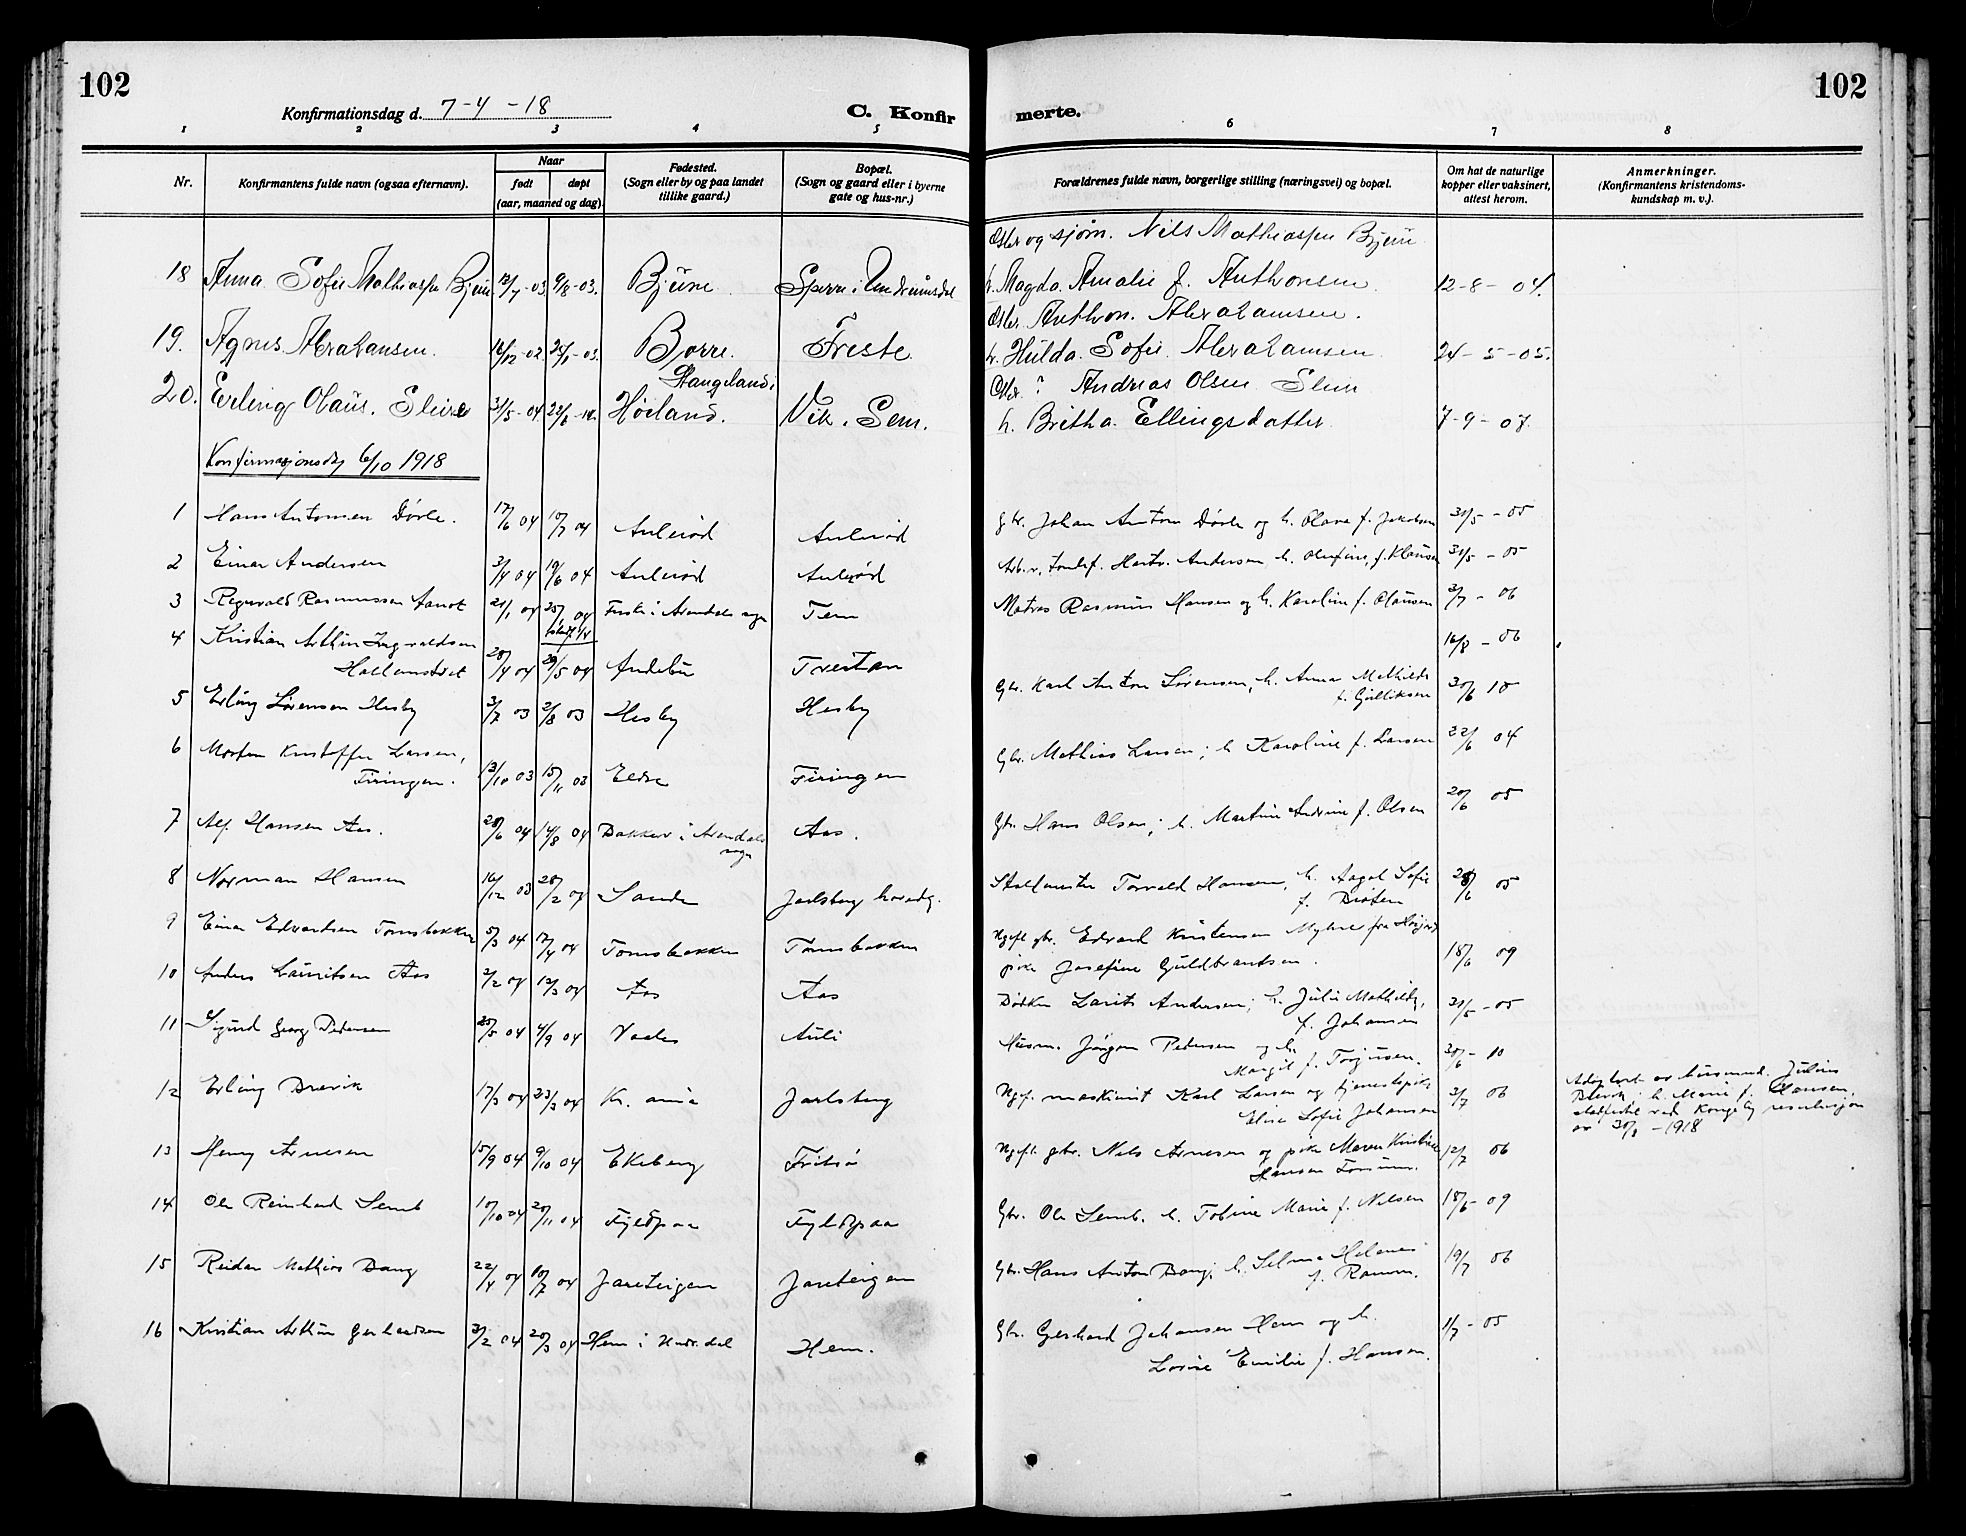 102
102
Konfirmationsdag d. 7-4-18
C. Konfirmerte.
1 2 3 4 5 6 7 8
Nr.
Konfirmantens fulde navn (ogsaa efternavn).
Naar
født døpt
(aar, maaned og dag).
Fødested.
(Sogn eller by og paa landet
tillike gaard.)
Bopæl.
(Sogn og gaard eller i byerne
gate og hus-nr.)
Forældrenes fulde navn, borgerlige stilling (næringsvei) og bopæl.
Om hat de naturlige
kopper eller vaksinert,
attest herom.
Anmerkninger.
(Konfirmantens kristendoms-
kundskap m. v.).
og sjøm. Nils Mathiassen Bjune
18 Anna Sofie Mathiassen Bjune 12/7-03. 9/8-03. Bjune Sperre i Undrumsdal h. Magda Amalie f. Anthonsen 12-8-04.
Anthon. Abrahamsen.
19. Agnes Abrahamsen. 16/12-02. 25/1-03. Borre. Freste. h. Hulda Sofie Abrahamsen 24-5-05.
Stangeland i
? Andreas Olsen Sleire
20. Erling Olaus. Sleire 31/5-04. Høiland. Vik. Sem. h. Britha Ellingsdatter 7-9-07.
Konfirmasjonsdag 6/10 1918
1 Hans Antonsen Dørle. 17/6 04 10/7 04 Aulerød Aulerød Gbr. Johan Anton Dørle og h. Olava f. Jakobsen 31/5-05
2 Einar Andersen 3/4 04 19/6 04 Aulerød Aulerød Andersen h. f. Klausen 31/5-05
3 Rasmussen 21/1 04 25/7 04 i Arendals sogn Tem Rasmus Hansen og h. Karoline f. Olausen 3/7-06
4 Kristian Arthur Ingvaldsen 16/8-06
28/4 04 29/5 04 Andebu Trestan
5 Erling Sørensen Hesby 3/7 03 2/8 03 Hesby Hesby Gbr. Karl Anton Sørensen, h. Anna Mathilde
f. Gulliksen 30/6 10
6 Morten Kristoffer Larsen,
Firingen. 13/10 03 15/11 03 Eldre Firingen Gbr. Mathias Larsen; h. Karoline f. Larsen 22/6 04
7 Alf Hansen Aas. 28/6 04 14/8 04 Bakker i Arendals
sogn Aas. Gbr. Hans Olsen; h. Martine Andrine f. Olsen 20/6 05
8 Norman Hansen 16/12 03 28/2 04 Sande Jarlsberg hovedg. Torvald Hansen, h. Aagot Sofie
f. Bråten 05
9 Einar Edvardsen Tornsbakken 5/3 04 17/4 04 Tornsbakken Tornsbakken Ugift gbr. Edvard Kristensen Myhre fra
pike Josefine Guldbrandsen. 18/6 09
10 Anders Lauritsen Aas 2/2 04 13/3 04 Aas Aas Bødker Laurits Andersen; h. Julie Mathilde,
f. Johansen 31/5-05
11 Sigurd Georg Pedersen 25/5 04 4/9 04 Vaale Auli Husm. Jørgen Pedersen og h.
Margit f. Torjusen. 30/6-10
12 Erling Brevik 17/3 04 23/3 04 Kr.ania Jarlsberg Ugift maskinist Karl Larsen og tjenestepike
Elise Sofie Johansen 3/7 06
Adoptert av husmand Julius
Brevik; h. Marie f. Hansen,
stadfestet ved kongelig resolusjon
av 30/8-1918
13 Henry Arnesen 15/9 04 9/10 04 Ekeberg Fritsø Ugift gbr. Nils Arnesen og pike Maren Kristine
Hansen 12/7 06
14 Ole Reinhard Semb 10/10 04 20/11 04 Fyldpaa Fyldpaa Gbr. Ole Semb. h. Tobine Marie f. Nilsen 18/6-09
15 Reidar Mathias Bang 22/4 04 10/7 04 Jareteigen Jareteigen Gbr. Hans Anton Bang; h. Selma Helene
f. Ramm. 19/7 06
16 Kristian Arthur Gerhardsen 3/2 04 20/3 04 Hem i Undr.dal Hem. Gbr. Gerhard Johansen Hem og h.
Lovise Emilie f. Hansen. 1/7-05